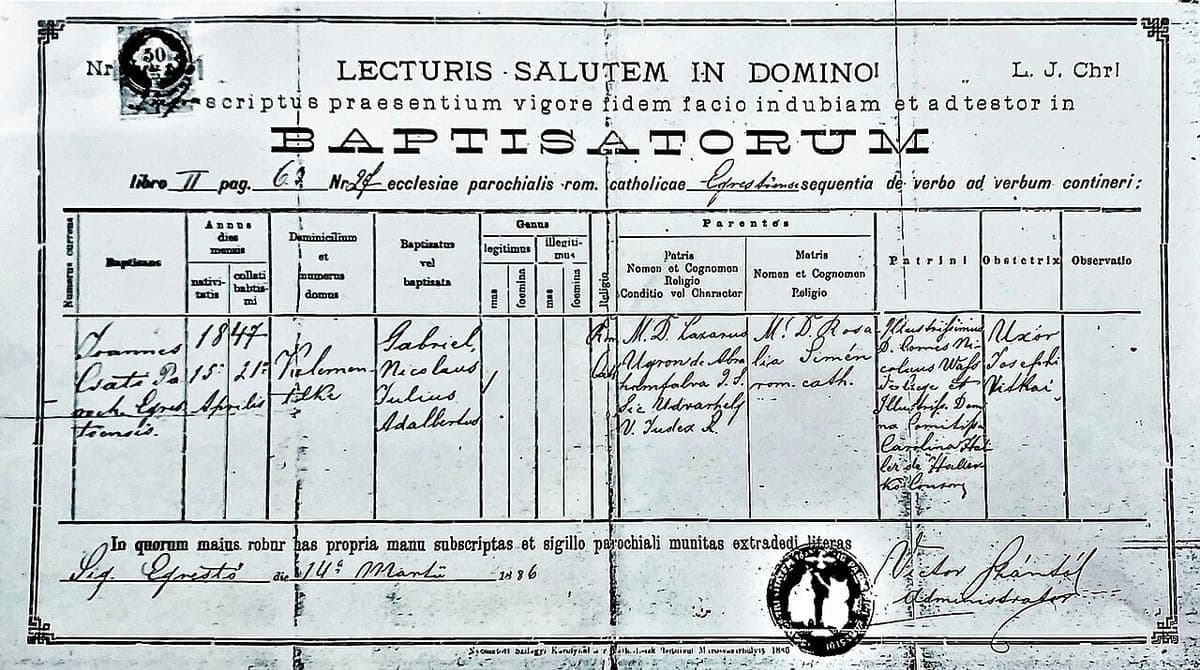 Nr
50
LECTURIS SALUTEM IN DOMINO!
L. J. Chr!
scriptus praesentium vigore fidem facio indubiam et adtestor in
BAPTISATORUM
libro II pag. 62 Nr. 27 ecclesiae parochialis rom. catholicae sequentia de verbo ad verbum contineri:
Numerus currens
Baptisans
Annus dies mensis
nativitatis
collati babtismi
Dominicilium et numerus domus
Baptisatus vel baptisata
Genus
legitimus
illegitimus
mas
foemina
mas
foemina
Religio
Parentes
Patris
Nomen et Cognomen
Religio
Conditio vel Character
Matris
Nomen et Cognomen
Religio
Patrini
Obstetrix
Observatio
Joannes
Csató Pa
roch. Egres
toensis.
1847
15a 21a
Aprilis
Velemen-
telke
Gabriel,
Nicolaus
Julius
Adalbertus
Rom
Cath
M. D. Lazarus
Ugron de Abra
hamfalva I. S.
Sic. Udvarhely
V. Judex R.
M. D. Rosa
lia Simén
rom. cath.
Illustrissimus
D. Comes Ni-
colaus Wass
de Czege et
Illustriss. Dom
na Comitissa
Carolina Hal
ler de Haller
kő Consors
Uxor
Josephi
Vitkai
In quorum maius robur has propria manu subscriptas et sigillo parochiali munitas extradedi literas
Sig. Egrestő die 14a Martii 1886
Victor
Administrator